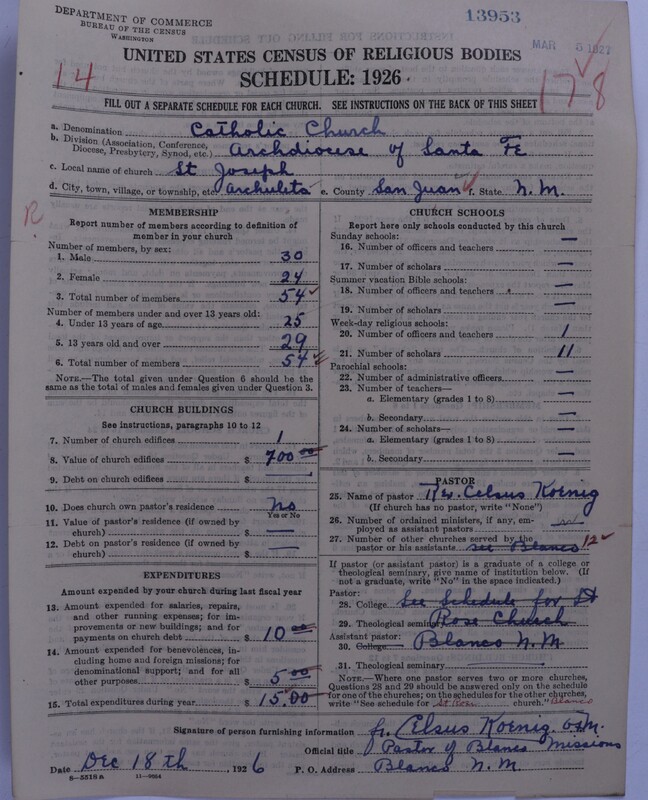 DEPARTMENT OF COMMERCE
BUREAU OF THE CENSUS
WASHINGTON
13953
MAR 5 1927
UNITED STATES CENSUS OF RELIGIOUS BODIES
SCHEDULE: 1926
14
17 8
FILL OUT A SEPARATE SCHEDULE FOR EACH CHURCH. SEE INSTRUCTIONS ON THE BACK OF THIS SHEET
a. Denomination Catholic Church
b. Division (Association, Conference, Diocese, Presbytery, Synod, etc.) Archdiocese of Santa Fe
c. Local name of church St Joseph
d. City, town, village, or township, etc. Archuleta e. County San Juan f. State N. M.
R
MEMBERSHIP
Report number of members according to definition of
member in your church
Number of members, by sex:
1. Male 30
2. Female 24
3. Total number of members 54
Number of members under and over 13 years old:
4. Under 13 years of age 25
5. 13 years old and over 29
6. Total number of members 54
NOTE.—The total given under Question 6 should be
same as the total of males and females given under Question 3.
CHURCH BUILDINGS
See instructions, paragraphs 10 to 12
7. Number of church edifices 1
8. Value of church edifices $ 700 00
9. Debt on church edifices $ —
10. Does church own pastor's residence No
Yes or No
11. Value of pastor's residence (if owned by
church) $ —
12. Debt on pastor's residence (if owned by
church) $ —
EXPENDITURES
Amount expended by your church during last fiscal year
13. Amount expended for salaries, repairs,
and other running expenses; for im-
provements or new buildings; and for
payments on church debt $ 10 00
14. Amount expended for benevolences,
including home and foreign missions; for
denominational support; and for all
other purposes $ 5 00
15. Total expenditures during year $ 15.00
CHURCH SCHOOLS
Report here only schools conducted by this church
Sunday schools:
16. Number of officers and teachers —
17. Number of scholars —
Summer vacation Bible schools:
18. Number of officers and teachers —
19. Number of scholars —
Week-day religious schools:
20. Number of officers and teachers 1
21. Number of scholars 11
Parochial schools:
22. Number of administrative officers —
23. Number of teachers—
a. Elementary (grades 1 to 8) —
b. Secondary —
24. Number of scholars—
a. Elementary (grades 1 to 8) —
b. Secondary —
PASTOR
25. Name of pastor Rev. Celsus Koenig
(If church has no pastor, write "None")
26. Number of ordained ministers, if any, em-
ployed as assistant pastors
27. Number of other churches served by the
pastor or his assistants see Blanco 12
If pastor (or assistant pastor) is a graduate of a college or
theological seminary, give name of institution below. (If
not a graduate, write "No" in the space indicated.)
Pastor:
28. College See Schedule for St
29. Theological seminary Rose Church
Assistant pastor:
30. College Blanco N. M
31. Theological seminary
NOTE.—Where one pastor serves two or more churches,
Questions 28 and 29 should be answered only on the schedule
for one of the churches; on the schedules for the other churches,
write "See schedule for St Rose church." Blanco
Signature of person furnishing information fr. Celsus Koenig. O.F.M.
Official title Pastor of Blanco Missions
Date Dec 18th, 1926 P. O. Address Blanco N. M.
8-5518 a 11-9554